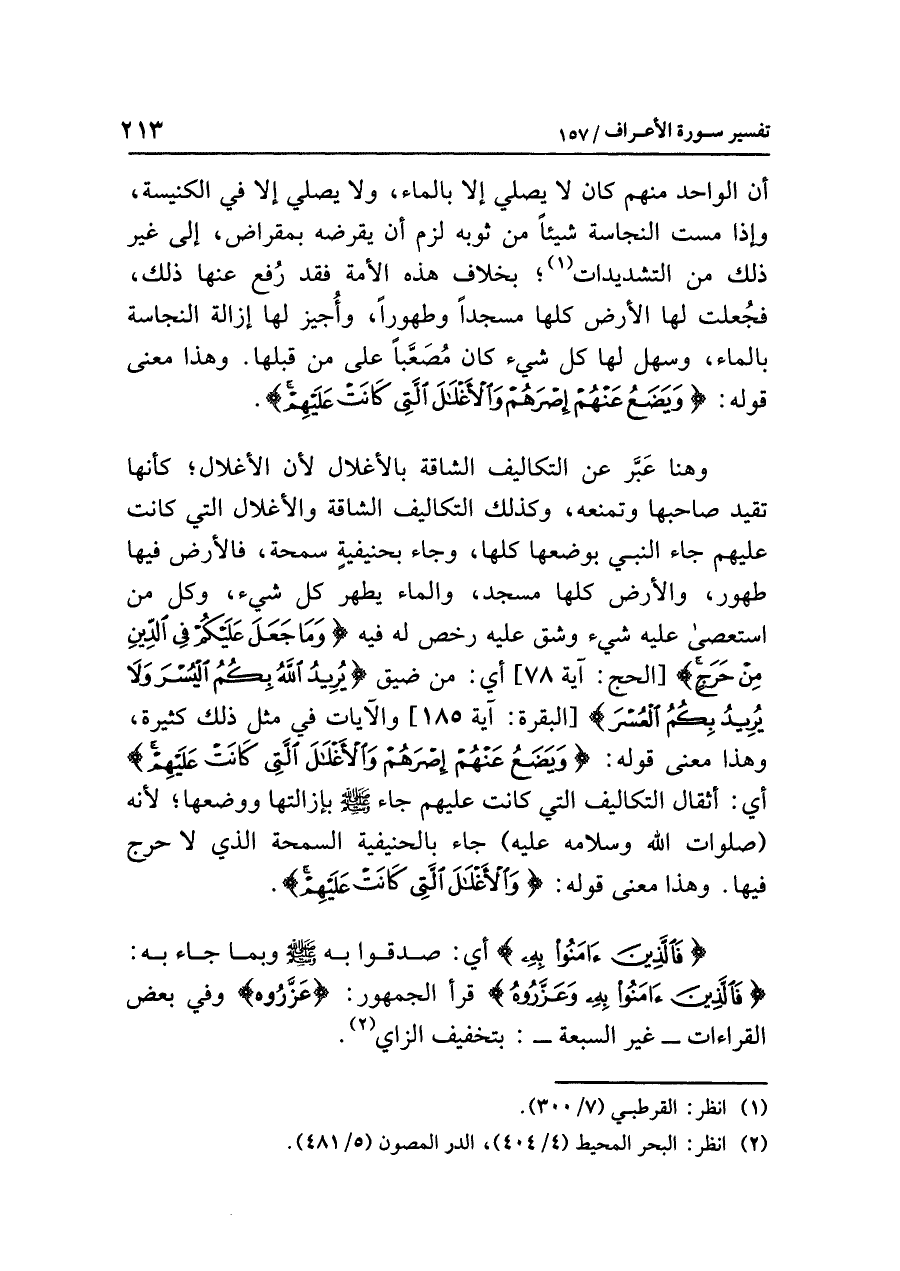 تفسير سورة الأعراف / ١٥٧
٢١٣
أن الواحد منهم كان لا يصلي إلا بالماء، ولا يصلي إلا في الكنيسة،
وإذا مست النجاسة شيئاً من ثوبه لزم أن يقرضه بمقراض، إلى غير
ذلك من التشديدات(١)؛ بخلاف هذه الأمة فقد رُفع عنها ذلك،
فجُعلت لها الأرض كلها مسجداً وطهوراً، وأُجيز لها إزالة النجاسة
بالماء، وسهل لها كل شيء كان مُصَعَّباً على من قبلها. وهذا معنى
قوله: ﴿ وَيَضَعُ عَنْهُمْ إِصْرَهُمْ وَٱلْأَغْلَـٰلَ ٱلَّتِى كَانَتْ عَلَيْهِمْ ۚ ﴾.
وهنا عَبَّر عن التكاليف الشاقة بالأغلال لأن الأغلال؛ كأنها
تقيد صاحبها وتمنعه، وكذلك التكاليف الشاقة والأغلال التي كانت
عليهم جاء النبي بوضعها كلها، وجاء بحنيفيةٍ سمحة، فالأرض فيها
طهور، والأرض كلها مسجد، والماء يطهر كل شيء، وكل من
استعصىٰ عليه شيء وشق عليه رخص له فيه ﴿ وَمَا جَعَلَ عَلَيْكُمْ فِى ٱلدِّينِ
مِنْ حَرَجٍ ۚ ﴾ [الحج: آية ٧٨] أي: من ضيق ﴿ يُرِيدُ ٱللَّهُ بِكُمُ ٱلْيُسْرَ وَلَا
يُرِيدُ بِكُمُ ٱلْعُسْرَ ﴾ [البقرة: آية ١٨٥] والآيات في مثل ذلك كثيرة،
وهذا معنى قوله: ﴿ وَيَضَعُ عَنْهُمْ إِصْرَهُمْ وَٱلْأَغْلَـٰلَ ٱلَّتِى كَانَتْ عَلَيْهِمْ ۚ ﴾
أي: أثقال التكاليف التي كانت عليهم جاء ﷺ بإزالتها ووضعها؛ لأنه
(صلوات الله وسلامه عليه) جاء بالحنيفية السمحة الذي لا حرج
فيها. وهذا معنى قوله: ﴿ وَٱلْأَغْلَـٰلَ ٱلَّتِى كَانَتْ عَلَيْهِمْ ۚ ﴾.
﴿ فَٱلَّذِينَ ءَامَنُوا۟ بِهِۦ ﴾ أي: صدقوا به ﷺ وبما جاء به:
﴿ فَٱلَّذِينَ ءَامَنُوا۟ بِهِۦ وَعَزَّرُوهُ ﴾ قرأ الجمهور: ﴿عَزَّرُوه﴾ وفي بعض
القراءات ــ غير السبعة ــ : بتخفيف الزاي(٢).
(١) انظر: القرطبي (٧/ ٣٠٠).
(٢) انظر: البحر المحيط (٤/ ٤٠٤)، الدر المصون (٥/ ٤٨١).